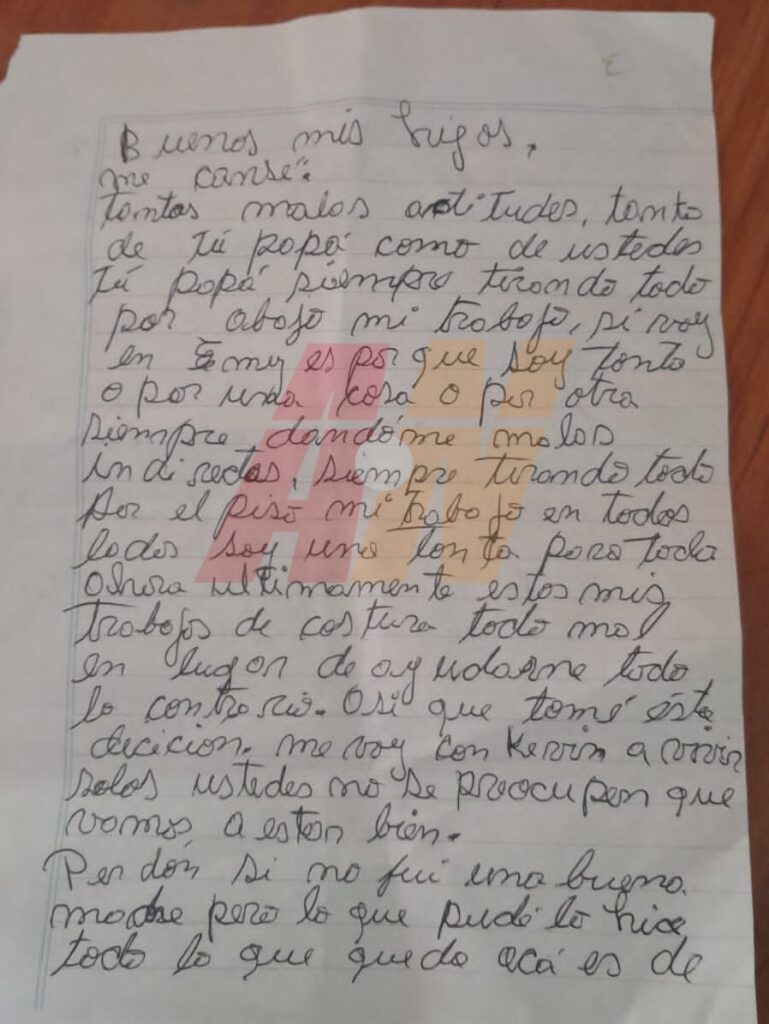 2
Buenos mis higos,
me canse.
tantas malas actitudes, tanto
de tú papá como de ustedes
tú papá siempre tirando todo
por abajo mi trabajo, si voy
en Emy es por que soy tonta
o por una cosa o por otra
siempre dandóme malas
indirectas, siempre tirando todo
por el piso mi trabajo en todos
lados soy una tonta para toda
ahora ultimamente estos mis
trabajos de costura todo mal
en lugar de ayudarme todo
lo contrario. Asi que tomé ésta
decicion. me voy con Kevin a vivir
solos ustedes no se preocupen que
vamos a estar bien.
Perdón si no fui una buena
madre pero lo que pude lo hice
todo lo que queda acá es de
AN